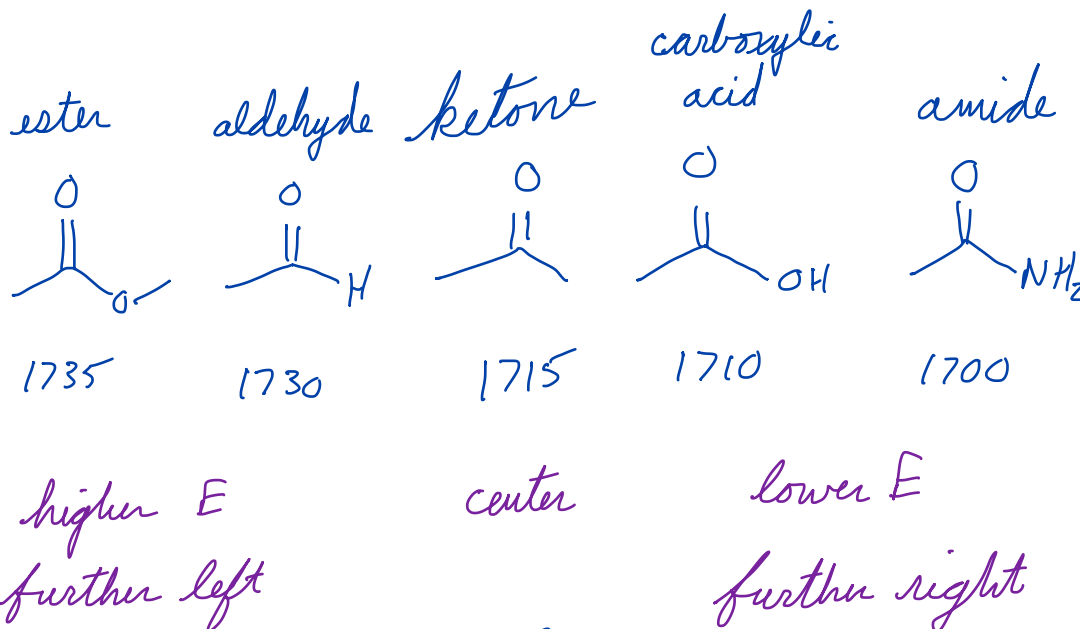 carboxylic
ester aldehyde ketone acid amide
O O O O O
O H OH NH₂
1735 1730 1715 1710 1700
higher E center lower E
further left further right